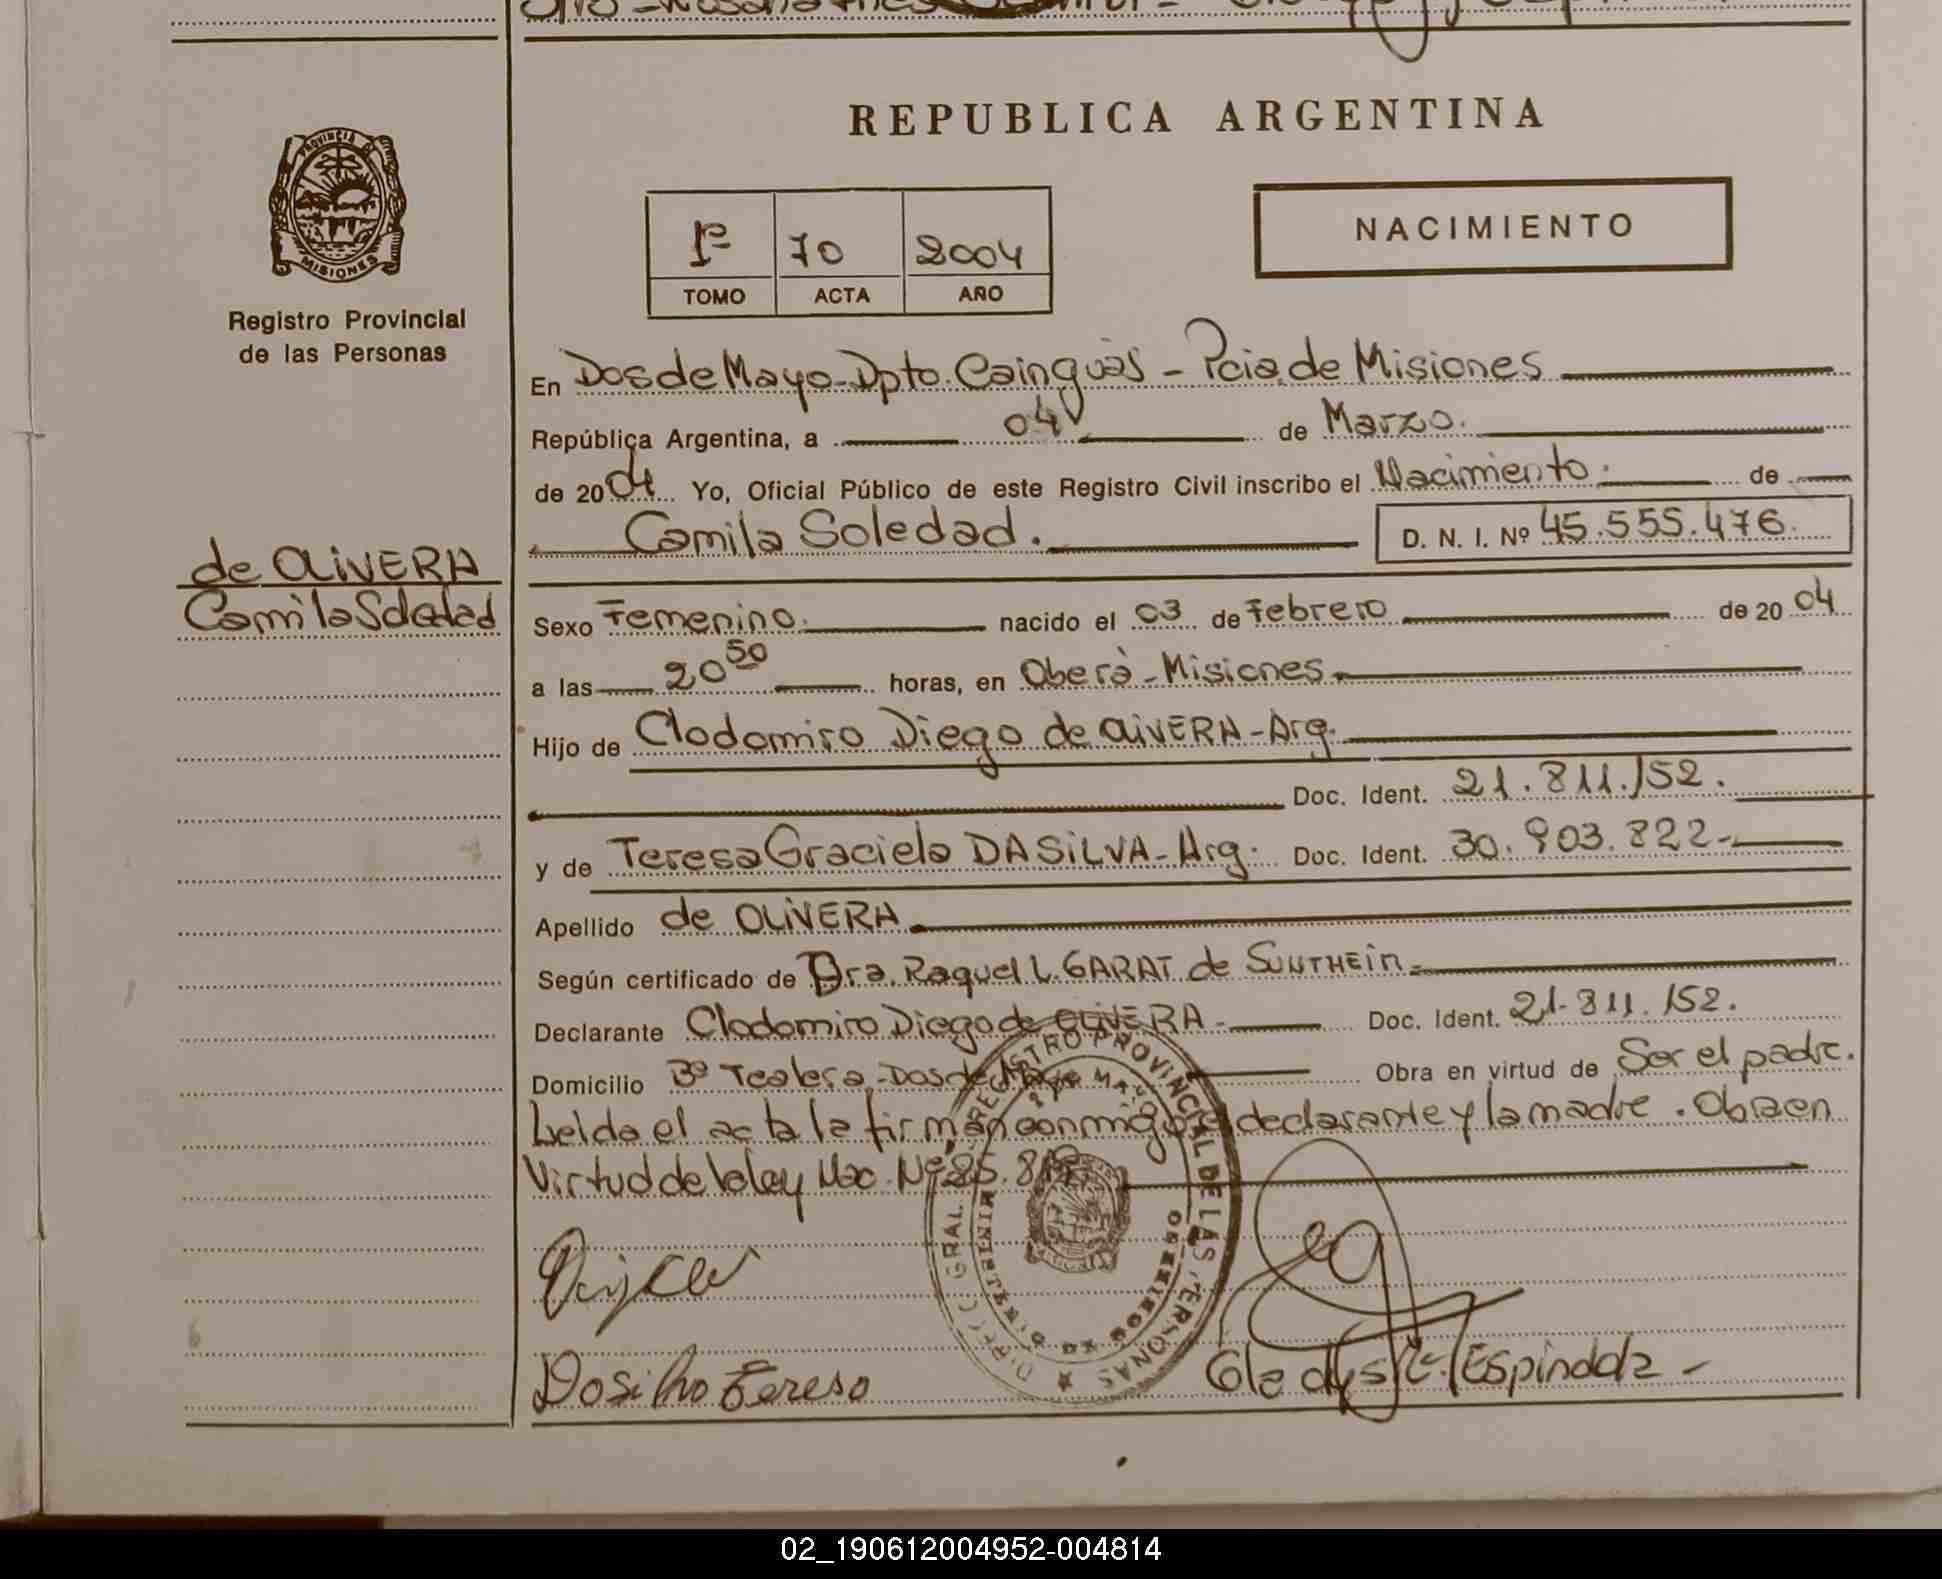 REPUBLICA ARGENTINA
PROVINCIA DE
MISIONES
Registro Provincial
de las Personas
1º 70 2004
TOMO ACTA AÑO
NACIMIENTO
En Dos de Mayo - Dpto. Cainguàs - Pcia. de Misiones
República Argentina, a 04 de Marzo.
de 2004 Yo, Oficial Público de este Registro Civil inscribo el Nacimiento. de
Camila Soledad. D. N. I. Nº 45.555.476.
de OLiVERA
Camila Soledad
Sexo Femenino. nacido el 03 de Febrero de 2004
a las 20 50 horas, en Oberà - Misiones.
Hijo de Clodomiro Diego de OLiVERA - Arg.
Doc. Ident. 21.811.152.
y de Teresa Graciela DA SiLVA - Arg. Doc. Ident. 30.903.822-
Apellido de OLiVERA
Según certificado de Dra. Raquel L. GARAT de SUNTHEin.
Declarante Clodomiro Diego de OLiVERA - Doc. Ident. 21.811.152.
Domicilio 3º Tealera - Dos de Mayo Obra en virtud de Ser el padre.
Leída el acta la firman conmigo el declarante y la madre. Obra en
Virtud de la ley Nac. Nº 25.819.
DIRECC. GRAL. REGISTRO PROVINCIAL DE LAS PERSONAS
Dasilva Teresa
Gladys M. Espindola -
02_190612004952-004814